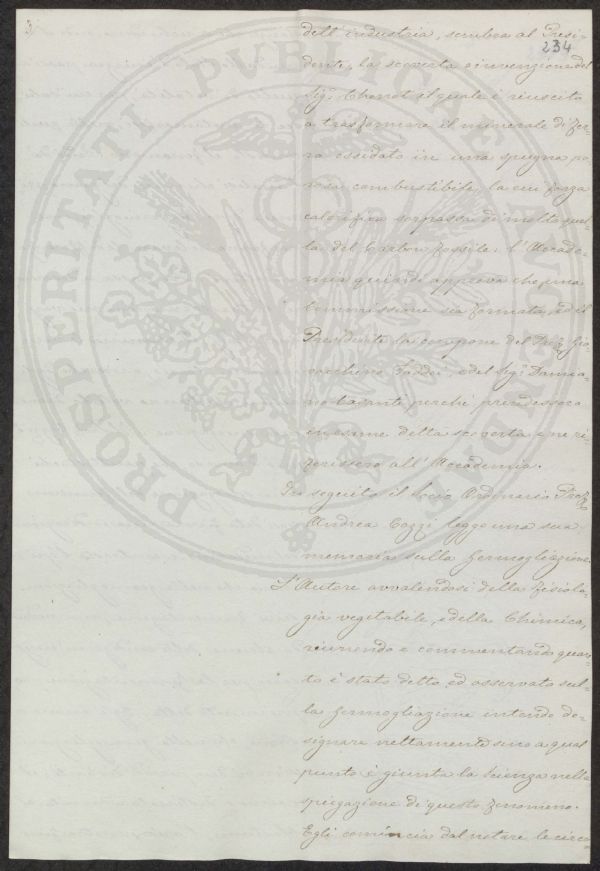 3
234
dell'industria, sembra al Presi-
dente, la scoperta o invenzione del
Sig. Chenot il quale è riuscito
a trasformare il minerale di fer-
ro ossidato in una spugna po-
rosa combustibile, la cui forza
calorifica sorpassa di molto quel-
la del Carbon fossile: l'Accade-
mia quindi approva che una
Commissione sia formata, ed il
Presidente la compone del Prof. Gio-
vacchino Taddei, e del Sig. Damia-
no Casanti perchè prendessero
in esame detta scoperta e ne ri-
ferissero all'Accademia.
In seguito il Socio Ordinario Prof.
Andrea Cozzi legge una sua
memoria sulla germogliazione.
L'Autore avvalendosi della fisiolo-
gia vegetabile, e della Chimica,
riunendo e commentando quan-
to è stato detto, ed osservato sul-
la germogliazione intende de-
signare nettamente sino a qual
punto è giunta la Scienza nella
spiegazione di questo fenomeno.
Egli comincia dal notare le circo
PROSPERITATI PUBLICAE AUGENDAE